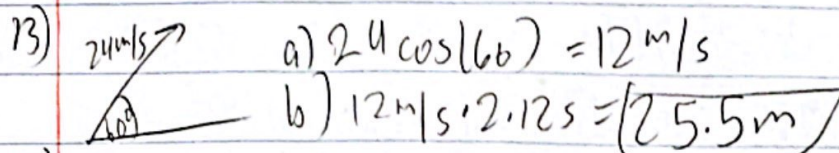 13) 24m/s 60° a) 24 cos(60) = 12 m/s
b) 12m/s · 2.12s = 25.5m